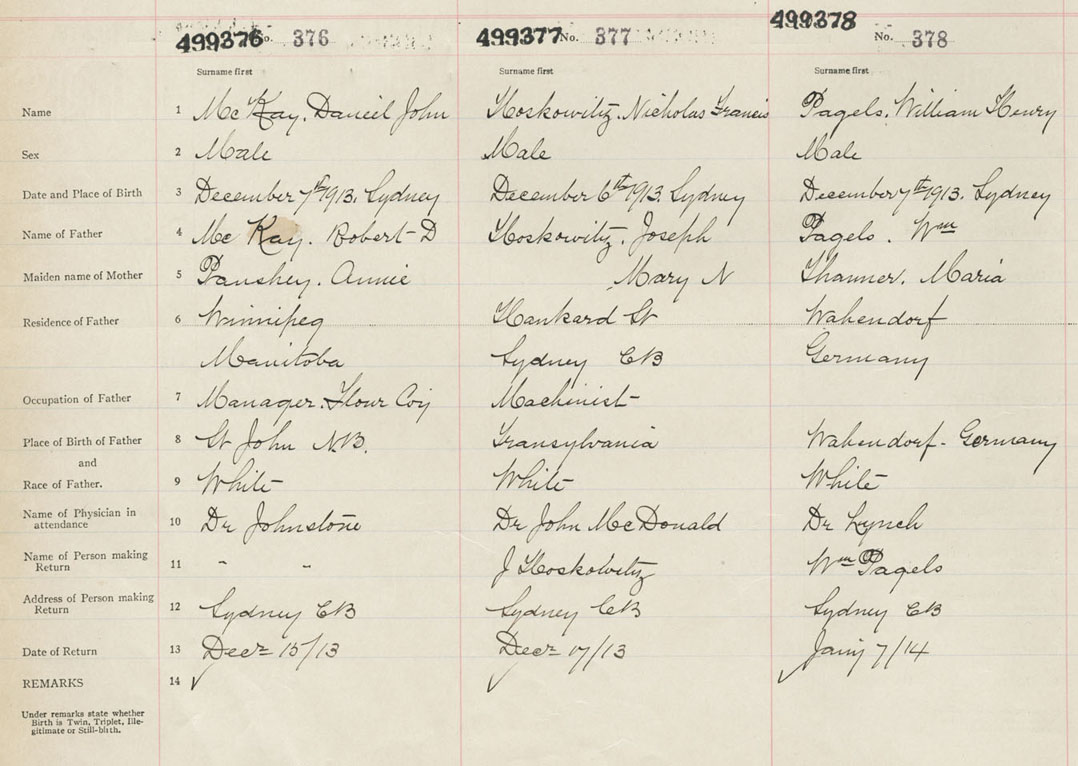 499376 No. 376 499377 No. 377 499378 No. 378
Surname first Surname first Surname first
Name 1 McKay. Daniel John Moskowitz. Nicholas Francis Pagels. William Henry
Sex 2 Male Male Male
Date and Place of Birth 3 December 7th 1913. Sydney December 6th 1913. Sydney December 7th 1913. Sydney
Name of Father 4 McKay. Robert D Moskowitz. Joseph Pagels. Wm
Maiden name of Mother 5 Annie Mary N Maria
Residence of Father 6 Winnipeg Hankard St Wahendorf
Manitoba Sydney CB Germany
Occupation of Father 7 Manager. Flour Coy Machinist
Place of Birth of Father 8 St John N.B. Transylvania Wahendorf - Germany
and
Race of Father. 9 White White White
Name of Physician in attendance 10 Dr Johnstone Dr John McDonald Dr Lynch
Name of Person making Return 11 " " J Moskowitz Wm Pagels
Address of Person making Return 12 Sydney CB Sydney CB Sydney CB
Date of Return 13 Decr 15/13 Decr 17/13 Jany 7/14
REMARKS 14
Under remarks state whether
Birth is Twin, Triplet, Ille-
gitimate or Still-birth.